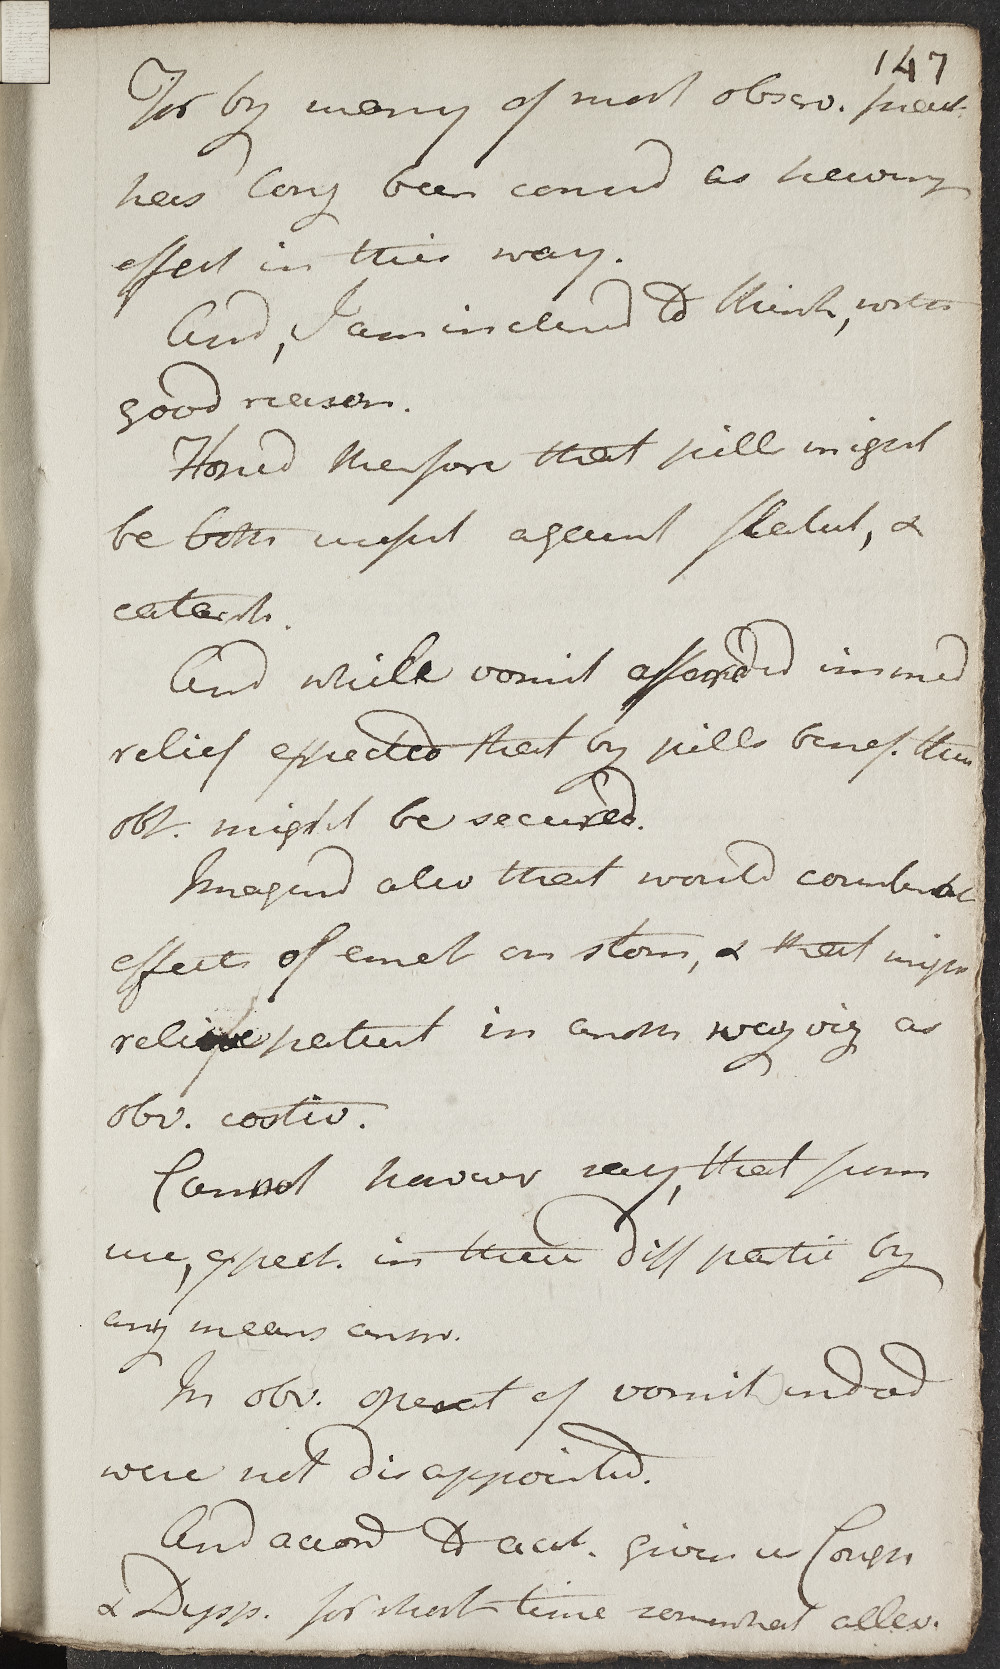 147
For by many of most observ. pract.
has long been consd as having
effect in this way.
And, I am inclend to think, with
good reason.
Hoped therfore that pill might
be both usefut against flatul, &
catarrh.
And while vomit afforded immed
relief expected that by pills benef. thus
obt. might be secured.
Imagind also that would counteract
effects of emet on stom, & that might
relieve patient in anoth way viz as
obv. costiv.
Cannot howevr say, that from
use, expect. in these diff partic by
any means answ.
In obv. operat of vomit indeed
were not disappointed.
And accord to acct. given us Cough
& Dysp. for short time somewhat allev.